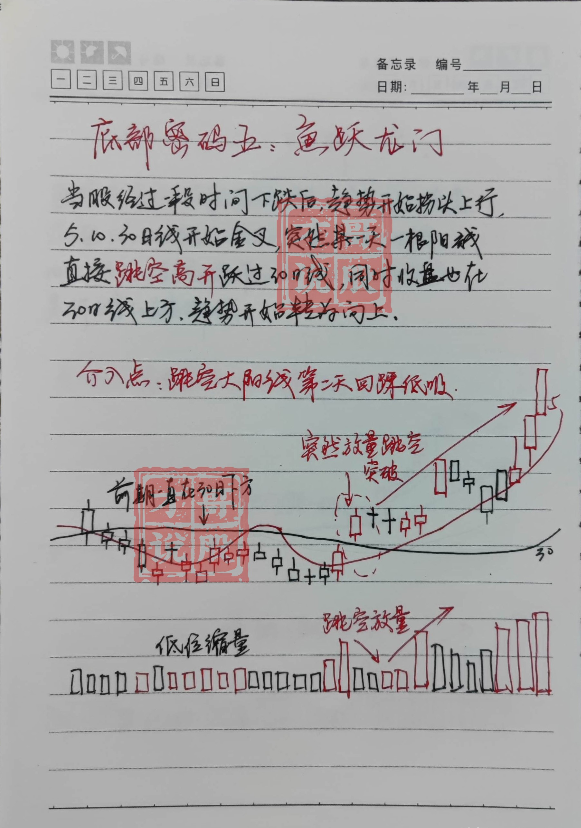 备忘录 编号
一 二 三 四 五 六 日
日期: 年 月 日
底部密码五:鱼跃龙门
当股经过一段时间下跌后,趋势开始拐头上行,
5.10.30日线开始金叉,突然某一天一根阳线
直接跳空高开跃过30日线,同时收盘也在
30日线上方,趋势开始转为向上.
介入点:跳空大阳线第二天回踩低吸.
突然放量跳空
突破
5
前期一直在30日下方
30
跳空放量
低位缩量